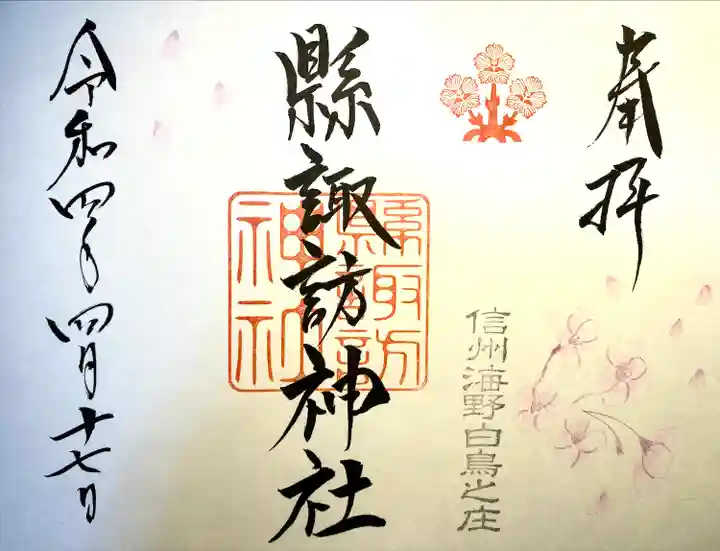 奉拝
信州海野白鳥之庄
縣諏訪神社
縣諏訪神社
令和四年四月十七日